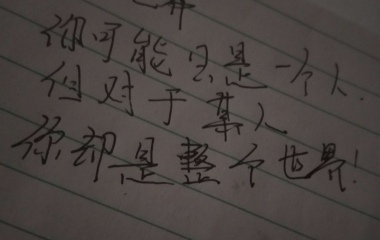 你可能只是一个人.
但对于某人
你却是整个世界!